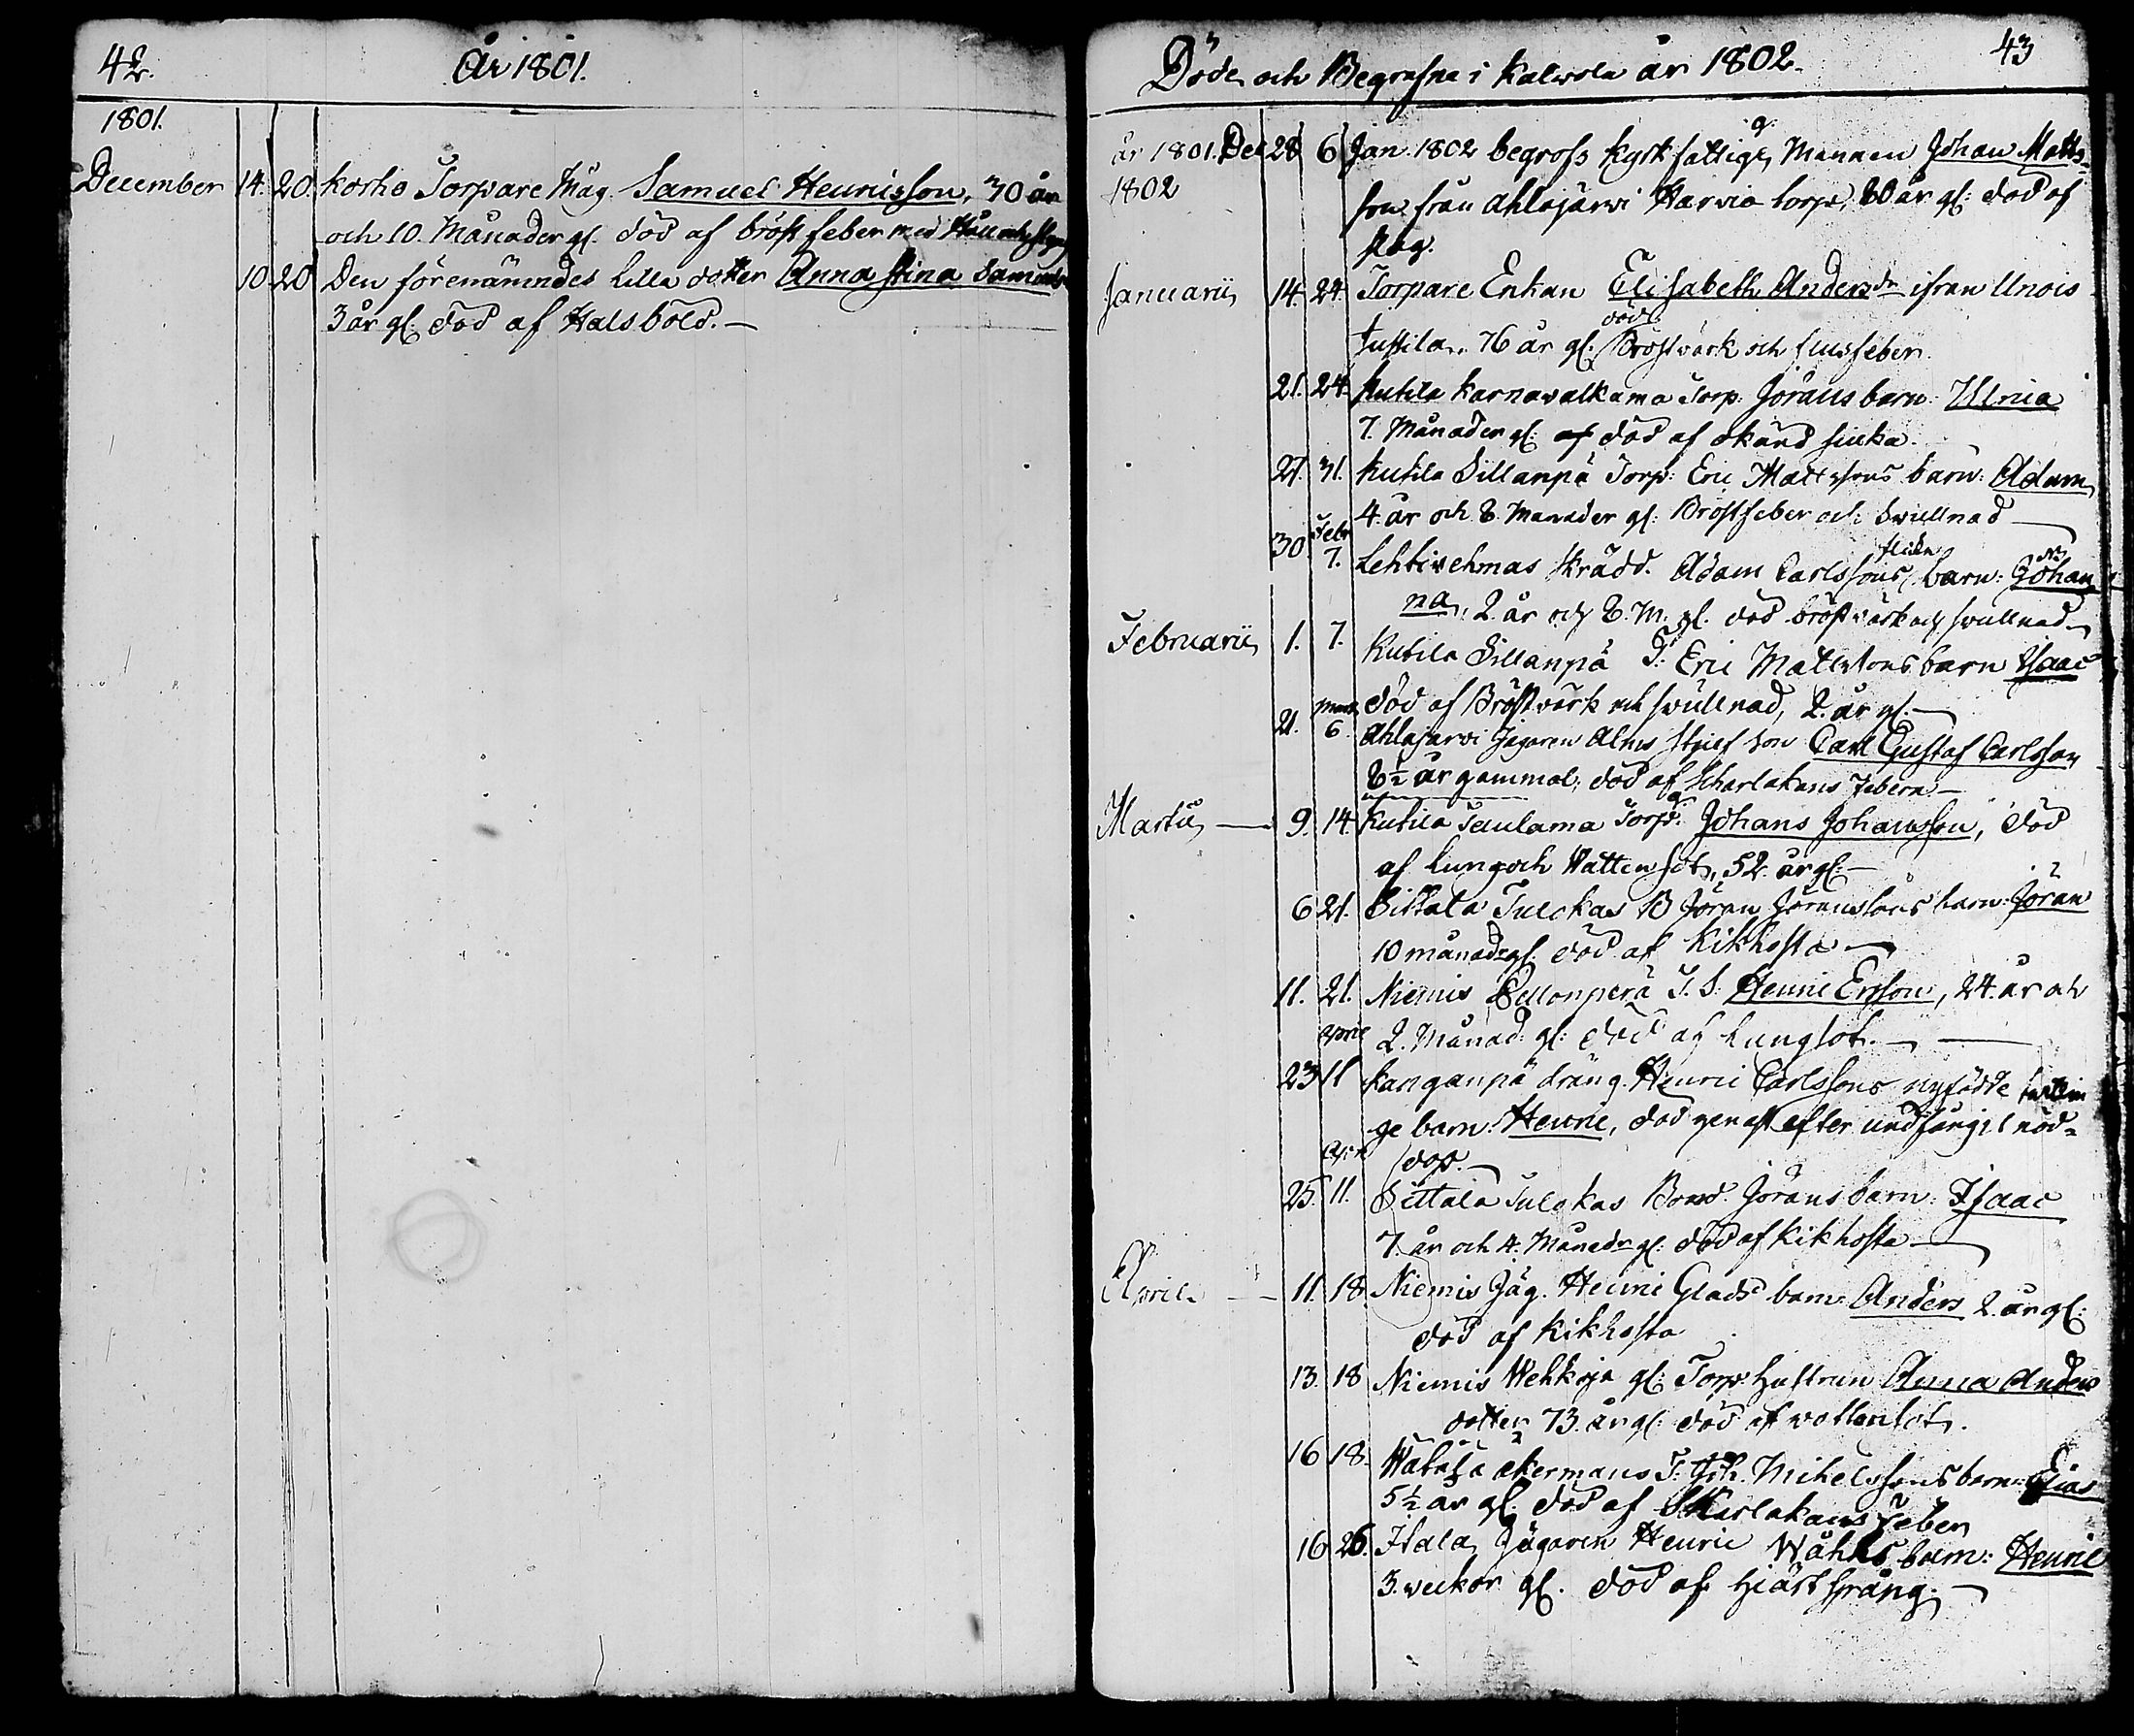 42.
År 1801.
1801.
December 14. 20. Korho Torpare Måg. Samuel Henricsson, 30 år
och 10. Månader gl. död af bröst feber med Håll och styng
10. 20 Den förenämndes lilla dotter Anna Stina Samuelsdr
3 år gl. död af Halsböld.
Döde och Begrafne i Kalwola år 1802.
43
år 1801. Dec 28 6 Jan. 1802 begrofs kyrk fattige Mannen Johan Matts-
1802
son från Ahlajärwi Harwia torp, 80 år gl: död af
slag.
Januarii 14. 24. Torpare Enkan Elisabeth Andersdr ifrån Unois
tustila, 76 år gl: död Bröstvärk och flussfeber.
21. 24. Kutila Karnawalkama Torp: Jörans barn: Ulrica
7. Månader gl: af död af okänd siuka.
27. 31. Kutila Sillanpä Torp: Eric Mattssons barn: Adam
4. år och 8. Månader gl: Bröstfeber och Swullnad
30 Febr 7. Lehtiwehmas Skrädd. Adam Carlssons flicka barn: Johan
na, 2 år och 8. M. gl. död bröstwärk och swullnad
Februarii 1. 7. Kutila Sillanpä T: Eric Mattssons barn Isaac
död af Bröstwärk och swullnad, 2. år gl.
21. Mart 6. Ahlajärwi Jägaren Alms Stjuf son Carl Gustaf Carlsson
8½ år gammal, död af Scharlakans Febern
Martii 9. 14 Kutila Taulama Torp: Johans Johansson, död
af Lung och Watten sot, 52 år gl:
6 21. Sittala Tulokas B Jöran Jöranssons barn: Jöran
10 månader gl. död af Kikhosta
11. 21. Niemis Pellonperä T. S. Henric Ersson, 24. år och
2. Månad: gl: död af Lungsot.
23 April 11 Kanganpä dräng Henric Carlssons nyfödde
ge barn: Henric, död genast efter undfångit nöd-
dop.
25. Apr 11. Sittala Tulokas Bond. Jörans barn: Isaac
7. år och 4. Månadr gl: död af Kikhosta
April 11. 18. Niemis Jäg. Henric Glads barn: Anders 2. år gl:
död af Kikhosta
13. 18 Niemis Wehkoja gl: Torp: Hustrun Anna Anders
dotter 73. år gl: död af wattensot.
16 18. Åkermans T: Joh. Mikelssons barn: Elias
5½ år gl. död af Skarlakans Feber
16 26. Itala, Jägaren Henric Wåhks barn: Henric
3. weckor gl. död af Hjärtsprång.